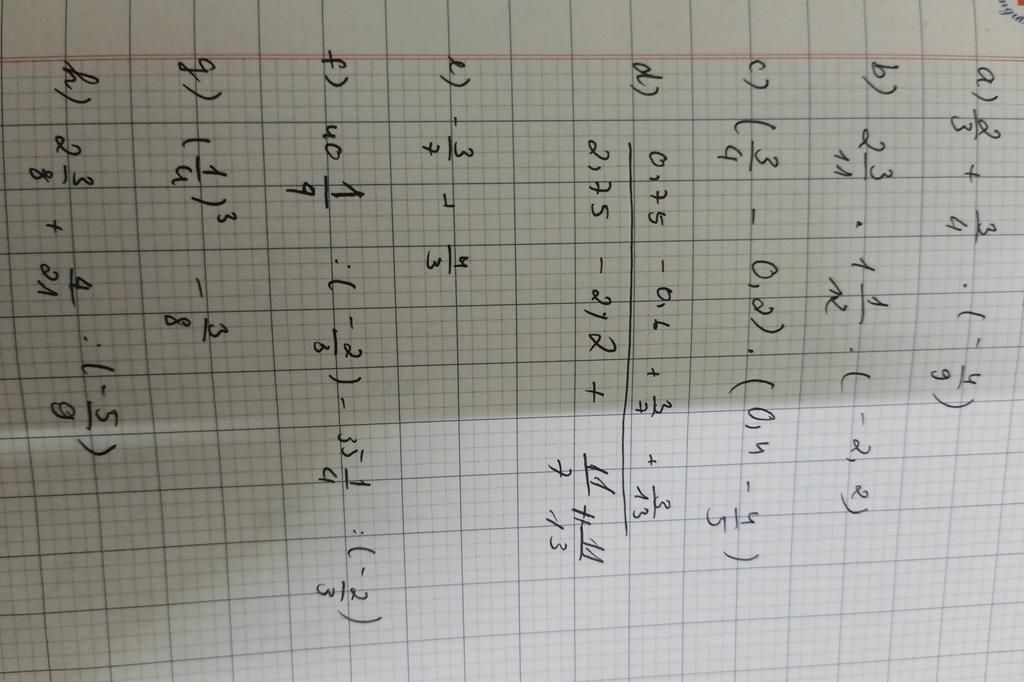 a) 2/3 + 3/4 . (- 4/9)
b) 2 3/11 . 1 1/12 . (- 2,2)
c) (3/4 - 0,2) . (0,4 - 4/5)
d) 0,75 - 0,6 + 3/7 + 3/13
2,75 - 2,2 + 11/7 + 11/13
e) - 3/7 + 4/3
f) 40 1/9 : (- 2/3) - 35 1/4 : (- 2/3)
g) (1/4)³ - 3/8
h) 2 3/8 + 4/21 : (- 5/9)